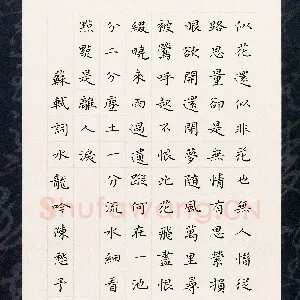 似花還似非花也無人惜從
路思量却是無情有思縈損
眼欲開還閉夢隨風萬里尋
被鶯呼起不恨此花飛盡恨
綴曉來雨過遺蹤何在一池
分二分塵土一分流水細看
點點是離人淚
蘇軾詞水龍吟陳愁予
Shufawang.CN